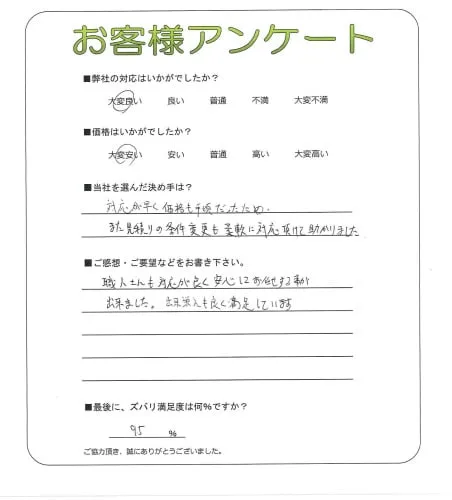 お客様アンケート
■弊社の対応はいかがでしたか?
大変良い 良い 普通 不満 大変不満
■価格はいかがでしたか?
大変安い 安い 普通 高い 大変高い
■当社を選んだ決め手は?
対応が早く価格も手頃だったため。
また見積りの条件変更も柔軟に対応頂けて助かりました
■ご感想・ご要望などをお書き下さい。
職人さんも対応が良く安心してお任せする事が
出来ました。出来栄えも良く満足しています
■最後に、ズバリ満足度は何%ですか?
95 %
ご協力頂き、誠にありがとうございました。